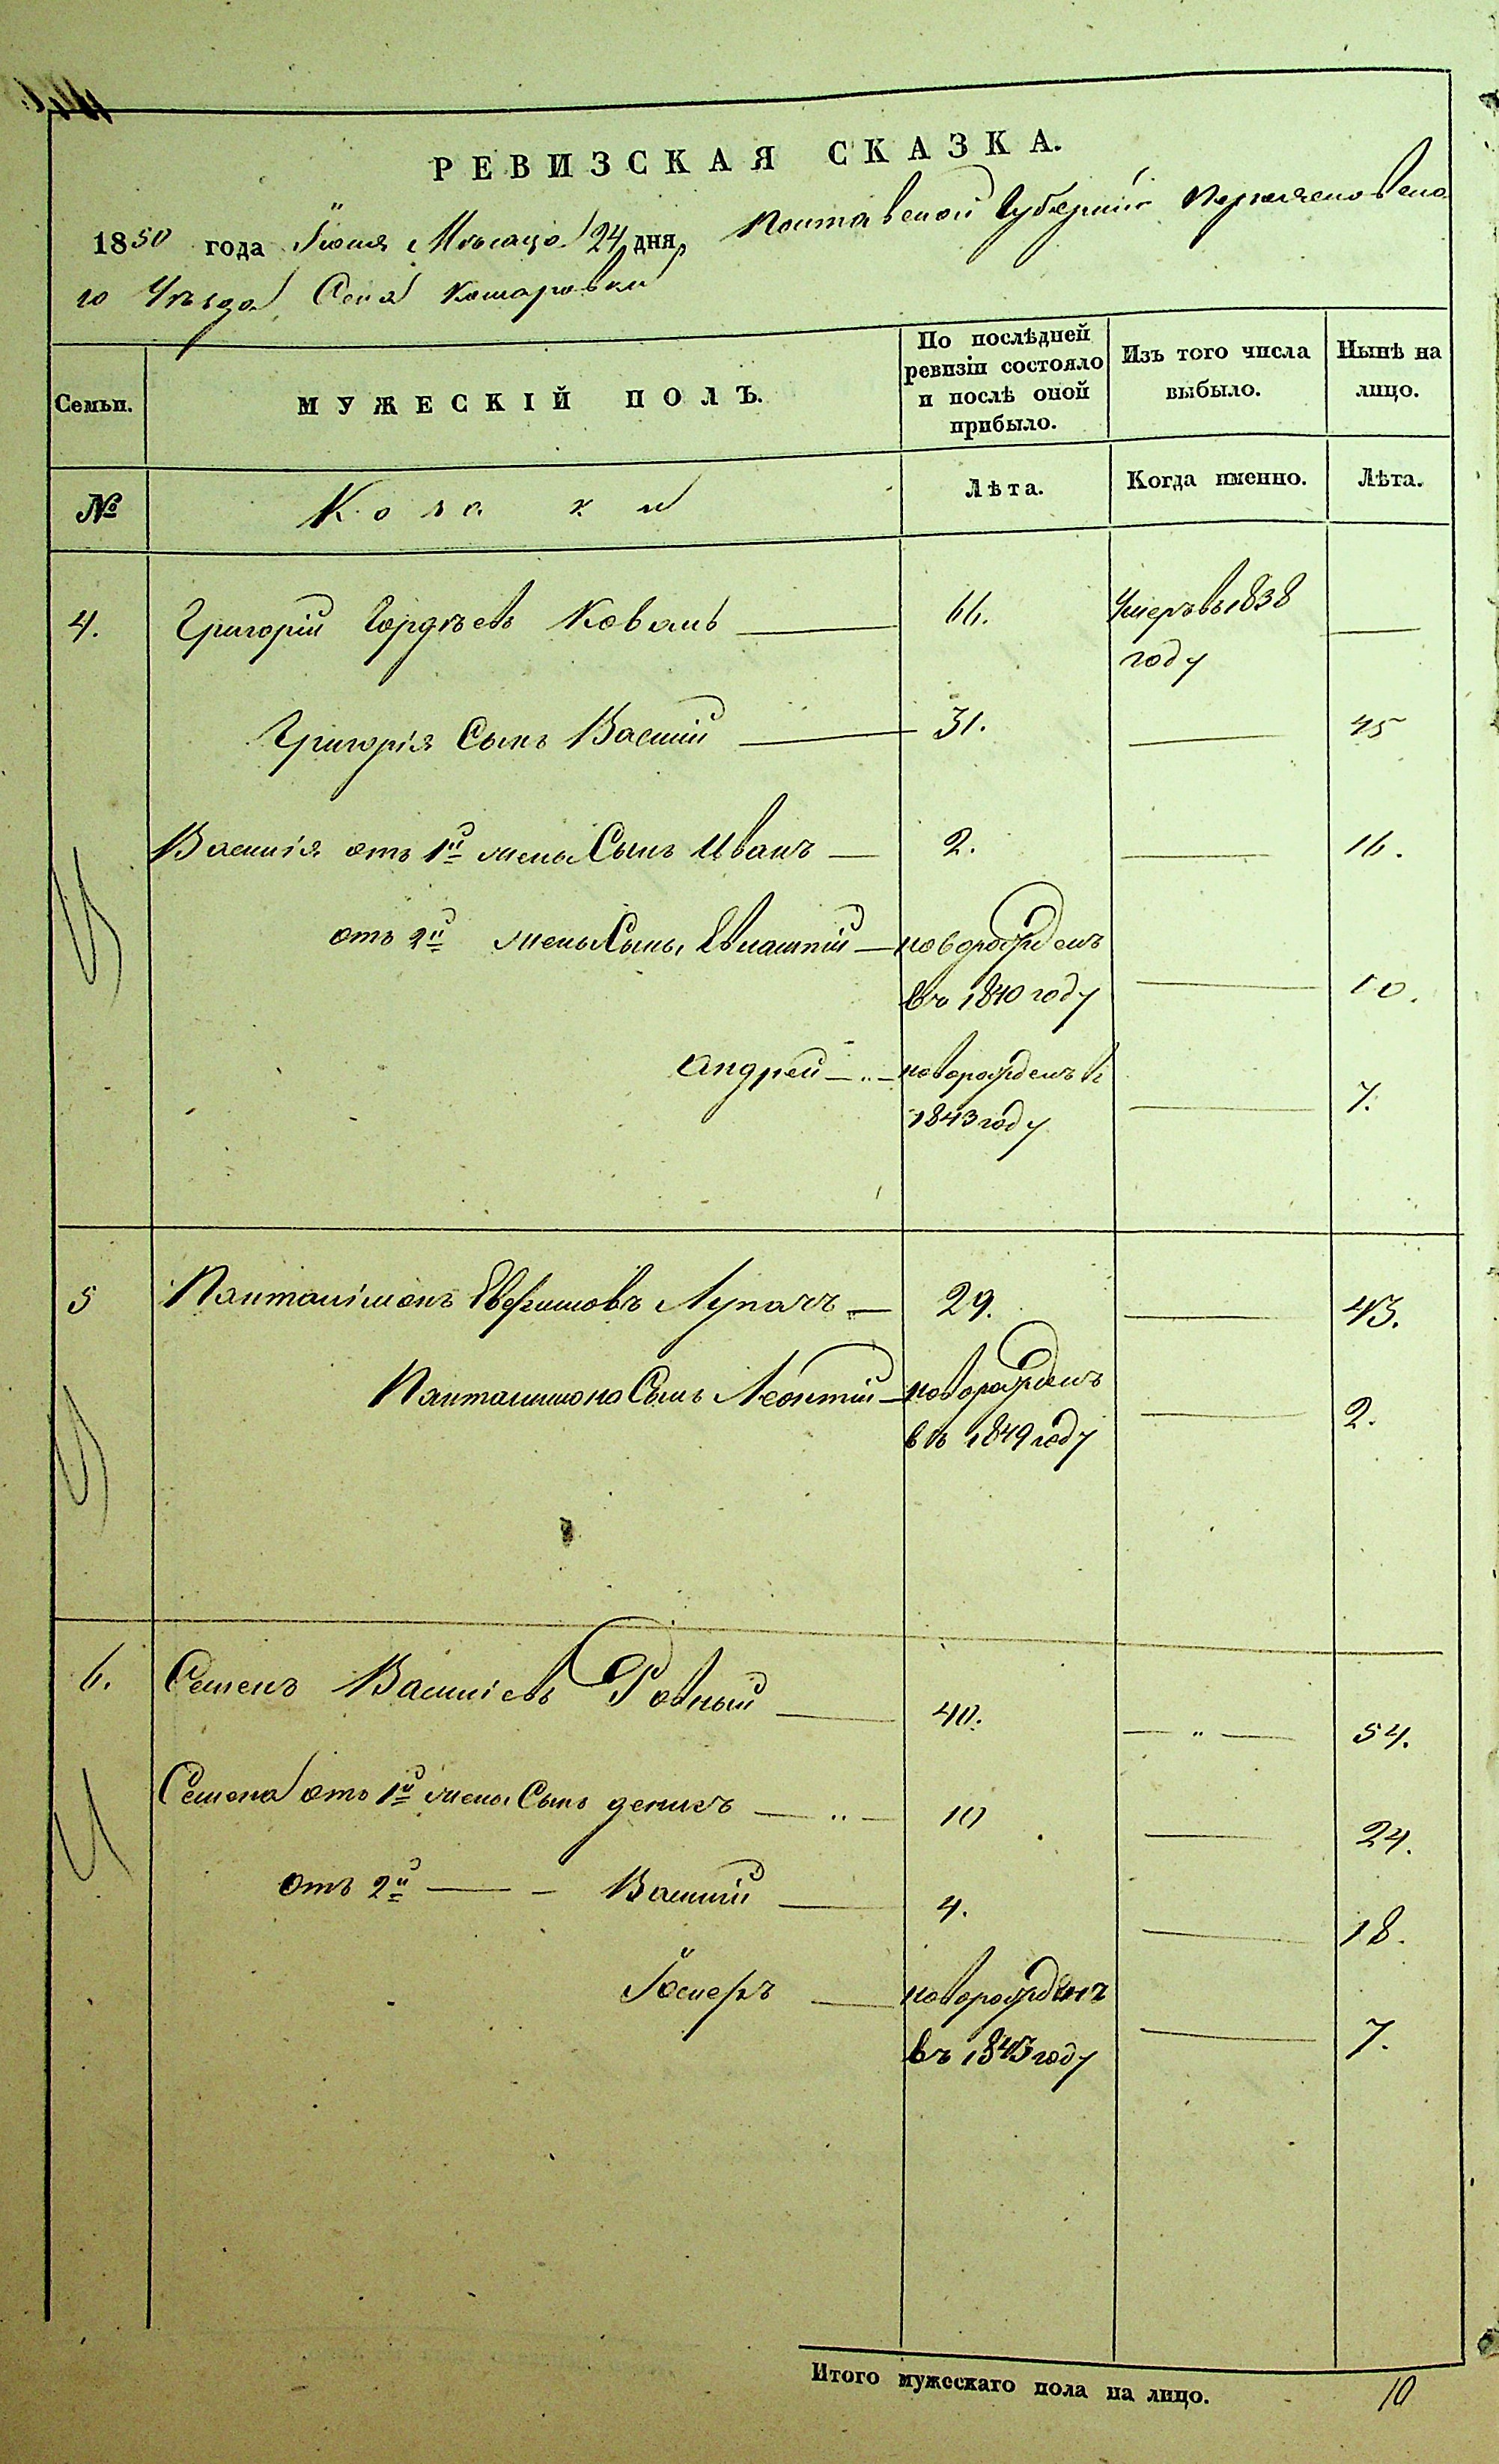 РЕВИЗСКАЯ СКАЗКА.
1850 года Іюня Мѣсяца 24 дня, Полтавской Губерніи Переяславска
го Уѣзда, Села Комаровки
Семьи.
МУЖЕСКІЙ ПОЛЪ.
По послѣдней ревизіи состояло и послѣ оной прибыло.
Изъ того числа выбыло.
Нынѣ на лицо.
№
Козаки
Лѣта.
Когда именно.
Лѣта.
4. Григорій Гордѣевъ Коваль — 66. Умеръ въ 1838 —
году
Григорія Сынъ Василій — 31. — 45
Василія отъ 1й жены Сынъ Иванъ — 2. — 16.
отъ 2й жены Сынъ Евлашпій — новорожденъ
въ 1840 году — 10.
Андрей — „ — новорожденъ въ
1843 году — 7.
5 Панталімонъ Евфимовъ Лупачъ — 29. — 43.
Панталимона Сынъ Леонтій — новорожденъ
въ 1849 году — 2.
6. Семенъ Василіевъ Ровный — 40. — „ — 54.
Семена отъ 1й жены Сынъ Денисъ — „ — 10 — 24.
отъ 2й — – Василій — 4. — 18.
Іосифъ — новорожденъ
въ 1843 году — 7.
Итого мужескаго пола на лицо. 10